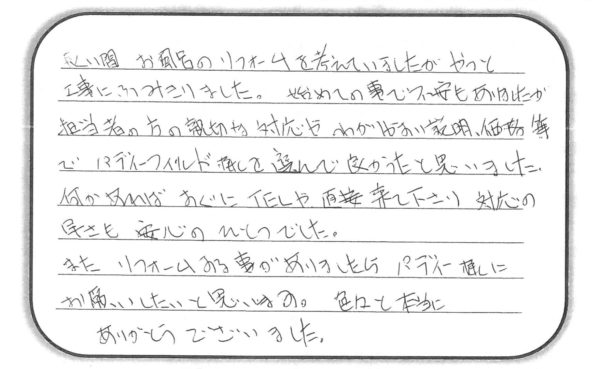 長い間 お風呂のリフォームを考えていましたが やっと
工事にふみきりました。 始めての事で不安もありましたが
担当者の方の親切な対応や わかりやすい説明、価格等
で バディーフィルド様を選んで良かったと思いました。
何かあれば すぐに TELや 直接来て下さり 対応の
早さも 安心のひとつでした。
また リフォームする事がありましたら バディー様に
お願いしたいと思います。 色々と本当に
ありがとうございました。